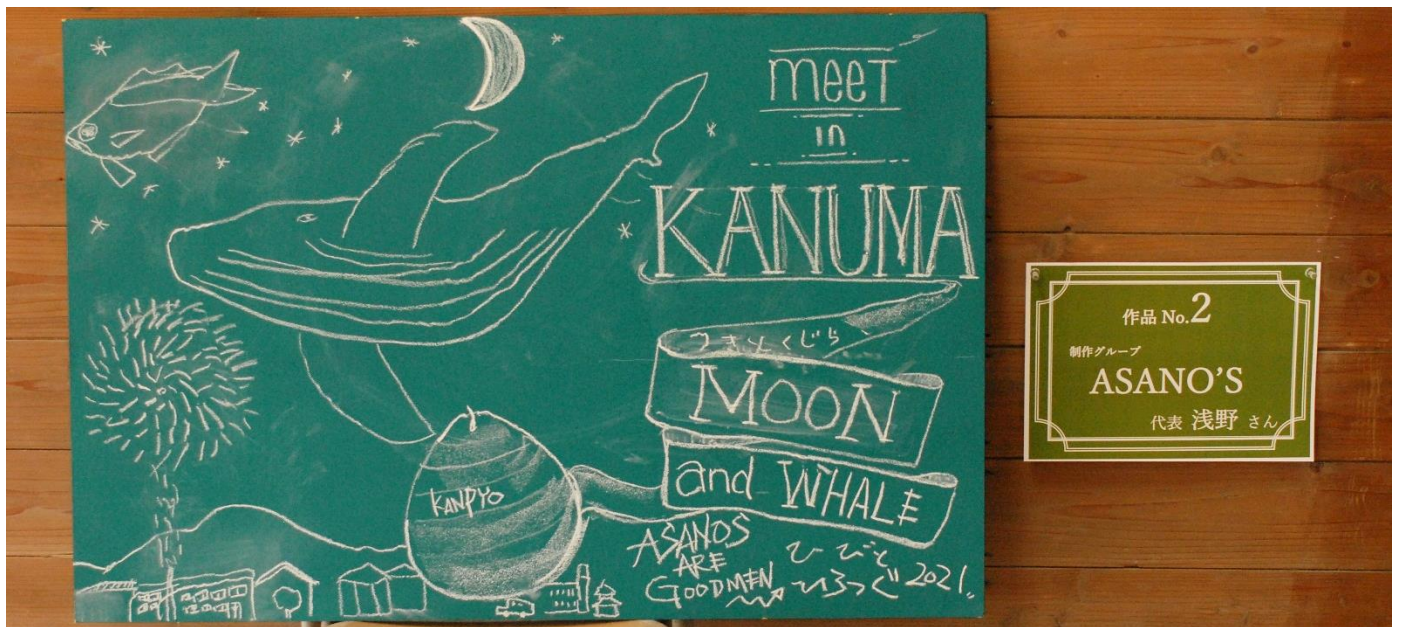 meet
in
KANUMA
つきとくじら
MOON
and WHALE
KANPYO
ASANOS
ARE
GOODMEN
ひびと
ひろっぐ 2021
作品 No.2
制作グループ
ASANO'S
代表 浅野 さん